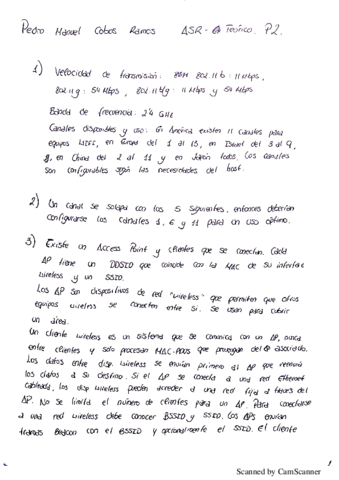 Pedro Manuel Cobos Ramos ASR - Teórico. P2.
1) Velocidad de transmisión: 802.11b: 11 Mbps,
802.11g: 54 Mbps, 802.11b/g: 11 Mbps y 54 Mbps.
Banda de frecuencia: 2'4 GHz
Canales disponibles y uso: En América existen 11 canales para
equipos, en del 1 al 13, en Israel del 3 al 9,
en China del 2 al 11 y en Japón todos. Los canales
son configurables según las necesidades del host.
2) Un canal se solapa con los 5 siguientes, entonces deberían
configurarse los canales 1, 6 y 11 para un uso óptimo.
3) Existe un Access Point y clientes que se conectan. Cada
AP tiene un que coincide con la MAC de su interfaz
wireless y un SSID.
Los AP son dispositivos de red "wireless" que permiten que otros
equipos wireless se conecten entre si. Se usan para cubrir
un área.
Un cliente wireless es un sistema que se comunica con un AP, nunca
entre clientes y solo procesan MAC-PDUs que provengan del asociado.
Los datos entre disp. wireless se envían primero al AP que reenvía
los datos a su destino. Si el AP se conecta a una red Ethernet
cableada, los disp wireless pueden acceder a una red fija a través del
AP. No se limita el número de clientes para un AP. Para conectarse
a una red wireless debe conocer BSSID y SSID. Los APs envían
tramas Beacon con el BSSID y opcionalmente el SSID. El cliente
Scanned by CamScanner